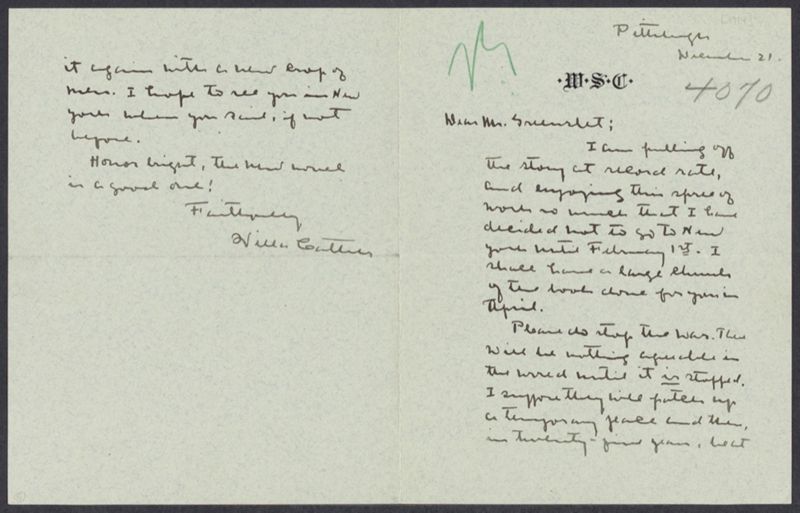 Pittsburgh
December 21.
·W·S·C·
4070
Dear Mr. Greenslet;
I am pulling off
the story at record rate,
and enjoying this spree of
work so much that I have
decided not to go to New
York until February 1st. I
shall have a large chunk
of the book done for you in
April.
Please do stop the war. There
will be nothing agreeable in
the world until it is stopped.
I suppose they will patch up
a temporary peace and then,
in twenty-five years, beat
it again with a new crop of
men. I hope to see you in New
York when you said, if not
before.
Honor bright, the new novel
is a good one!
Faithfully
Willa Cather